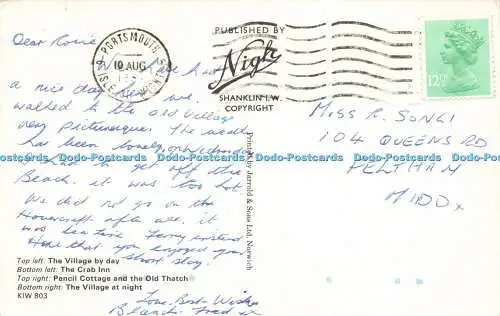 Dear Rosie
a nice day here
walked to the old Village
very picturesque. The weather
has been lovely, on Wednesday
we had to get off the
Beach. it was too hot
We did not go on the
Hovercraft after all. it
was Sea Link Ferry instead
Hope that you enjoyed your
short stay.
Love. Best Wishes
Blanch Fred
Top left: The Village by day
Bottom left: The Crab Inn
Top right: Pencil Cottage and the Old Thatch
Bottom right: The Village at night
KIW 803
PORTSMOUTH &
ISLE OF WIGHT
10 AUG
PUBLISHED BY
Nigh
SHANKLIN I.W.
COPYRIGHT
Printed by Jarrold & Sons Ltd, Norwich
12½P
MISS R. SONGI
104 QUEENS RD
FELTHAM
MIDDX
Postcards-Davids Postcards-Davids Postcards-Davids Postcards-Davids Postcards-Davids Postcards-Davids